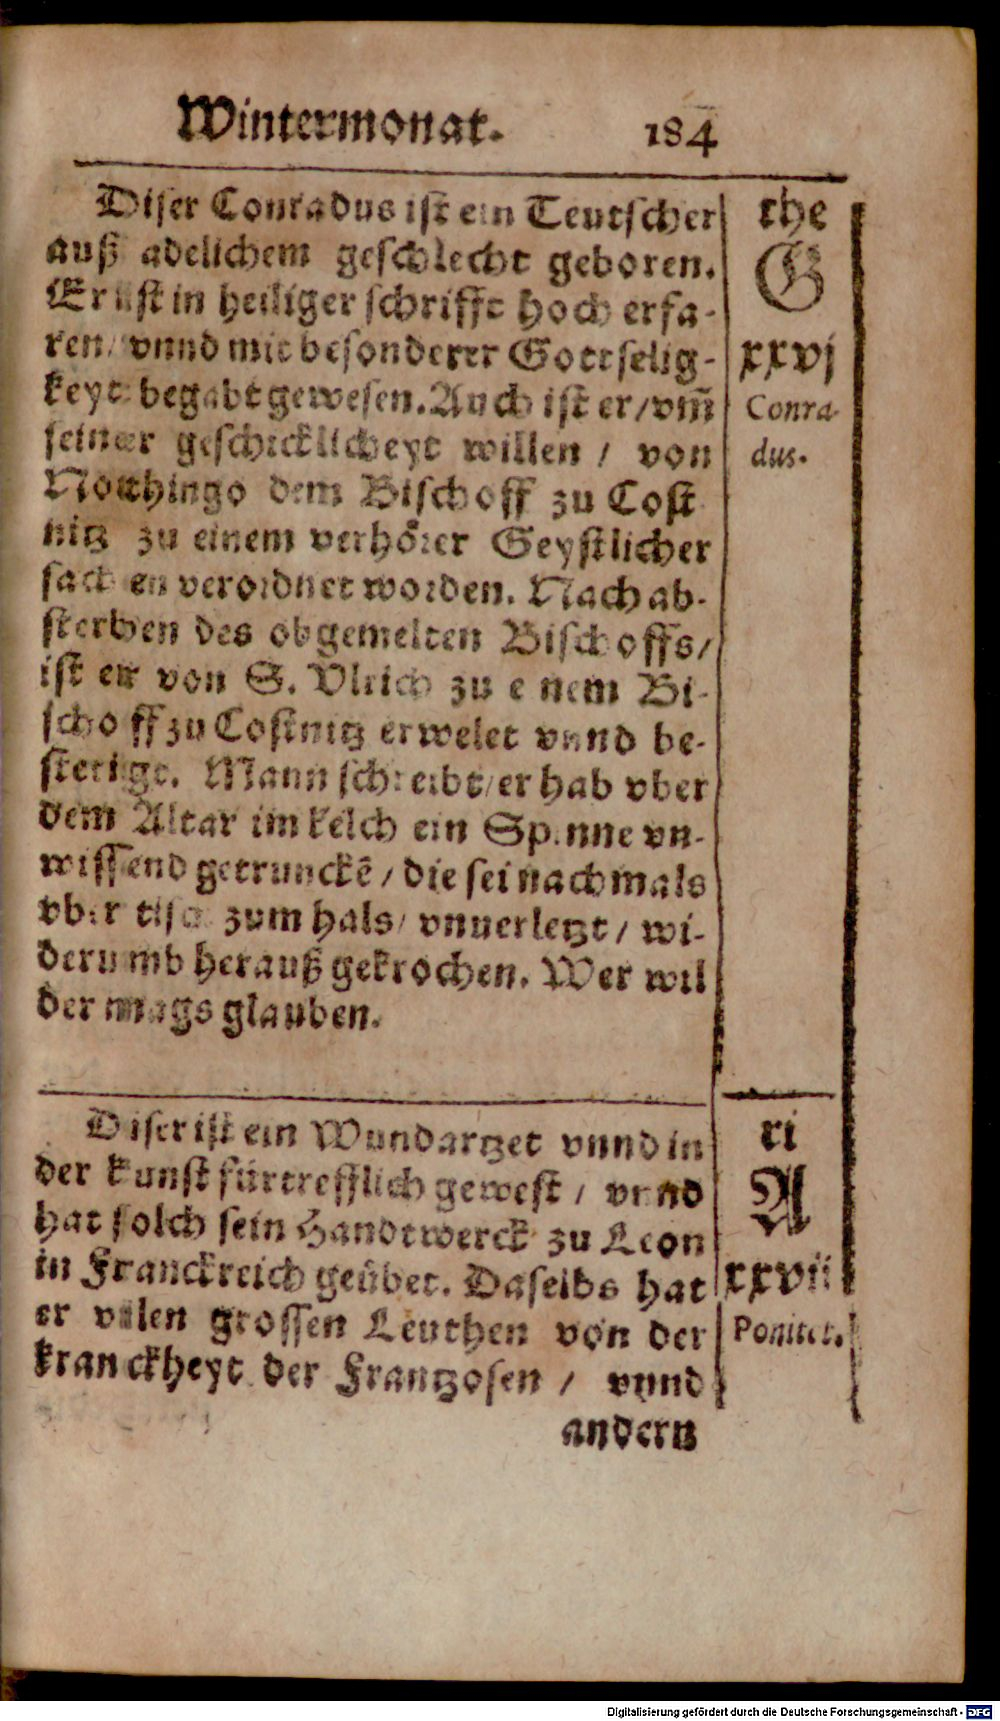 Wintermonat. 184
Diser Conradus ist ein Teutscher
auß adelichem geschlecht geboren.
Er ist in heiliger schrifft hoch erfa-
ren/ vnnd mit besonderer Gottselig-
keyt begabt gewesen. Auch ist er/ vm̃
seiner geschicklicheyt willen / von
Nothingo dem Bischoff zu Cost
nitz zu einem verhörer Geystlicher
sachen verordnet worden. Nach ab-
sterben des obgemelten Bischoffs/
ist er von S. Vlrich zu einem Bi-
schoff zu Costnitz erwelet vnnd be-
stetigt. Mann schreibt/ er hab vber
dem Altar im kelch ein Spinne vn-
wissend getrunckē / die sei nachmals
vber tisch zum hals/ vnuerletzt / wi-
derumb herauß gekrochen. Wer wil
der mags glauben.
the
G
xxvj
Conra-
dus.
Diser ist ein Wundartzet vnnd in
der kunst fürtrefflich gewest / vnnd
hat solch sein Handtwerck zu Leon
in Franckreich geübet. Daselbs hat
er vilen grossen Leuthen von der
kranckheyt der Frantzosen / vnnd
andern
ri
A
xxvii
Ponitet.
Digitalisierung gefördert durch die Deutsche Forschungsgemeinschaft - DFG